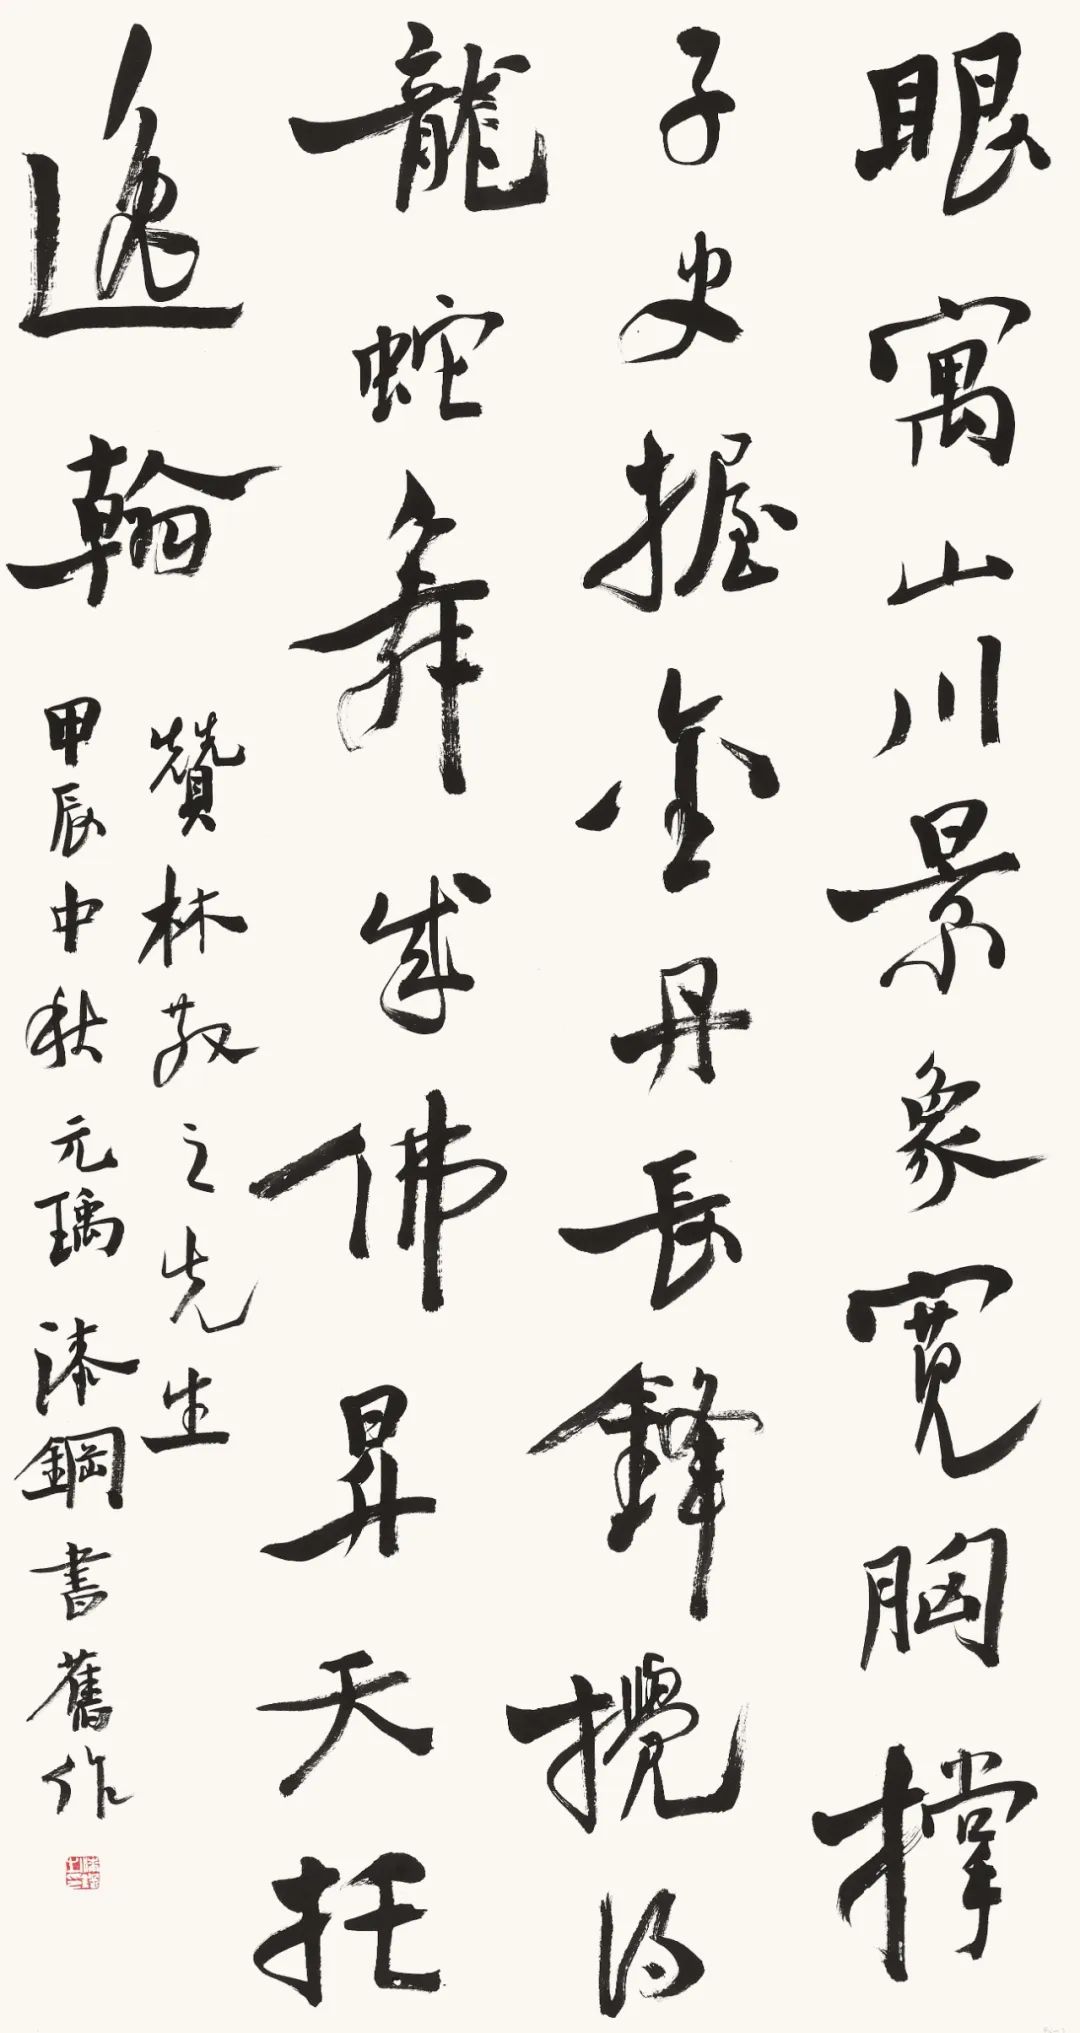 眼寓山川景象寬胸撐
子史握金丹長鋒攪得
龍蛇舞成佛昇天托
逸翰
贊林散之先生
甲辰中秋元瑀漆鋼書舊作